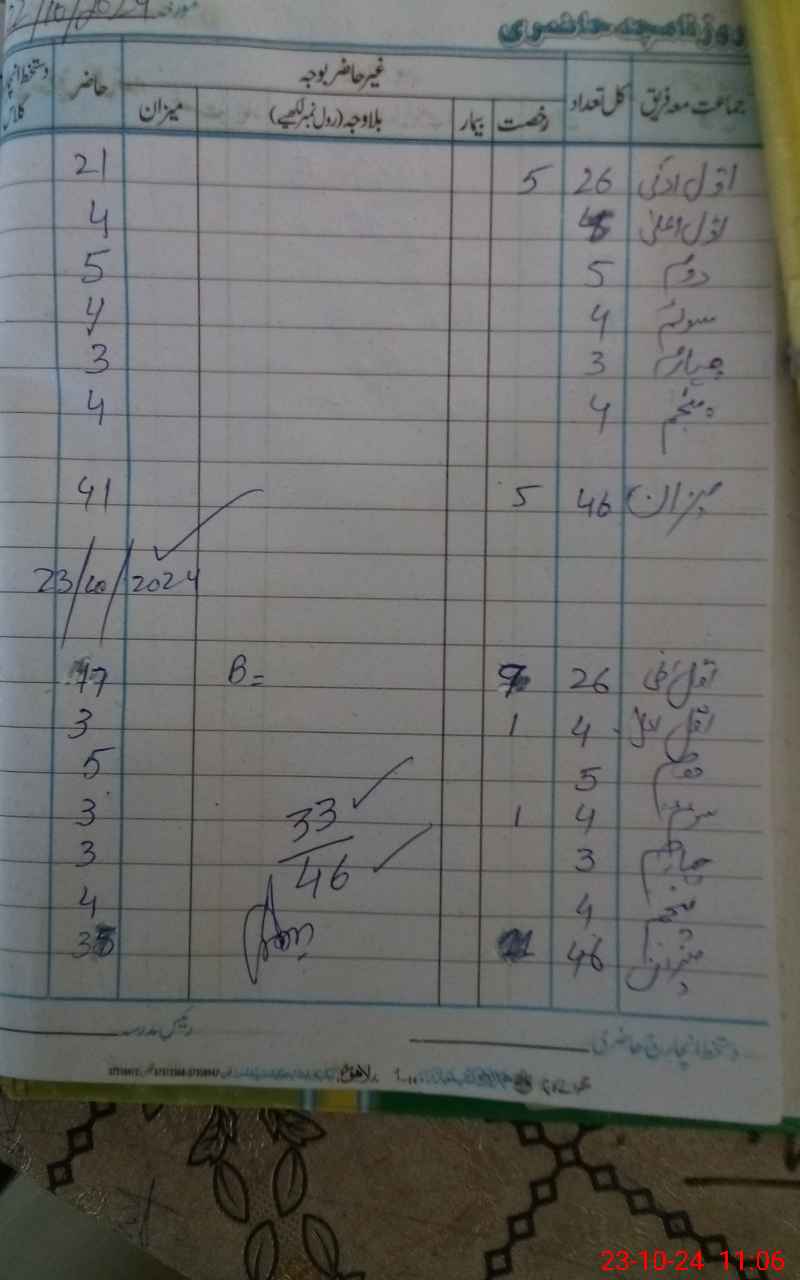 2/10/2024 مورخہ
روزنامچہ حاضری
جماعت معہ فریق کل تعداد غیر حاضر بوجہ حاضر دستخط انچا
رخصت بیمار بلاوجہ (رول نمبر لکھیے) میزان کلاس
اوّل ادنیٰ 26 5 21
اوّل اعلیٰ 4
دوئم 5 5
سوئم 4 4
چہارم 3 3
پنجم 4 4
میزان 46 5 41
23/10/2024
اوّل ادنیٰ 26 B= 17
اوّل اعلیٰ 4 1 3
دوئم 5 5
سوئم 4 1 3
33
چہارم 3 3
46
پنجم 4 4
میزان 46
دستخط انچارج حاضری رئیس مدرسہ
لاہور
23-10-24 11:06